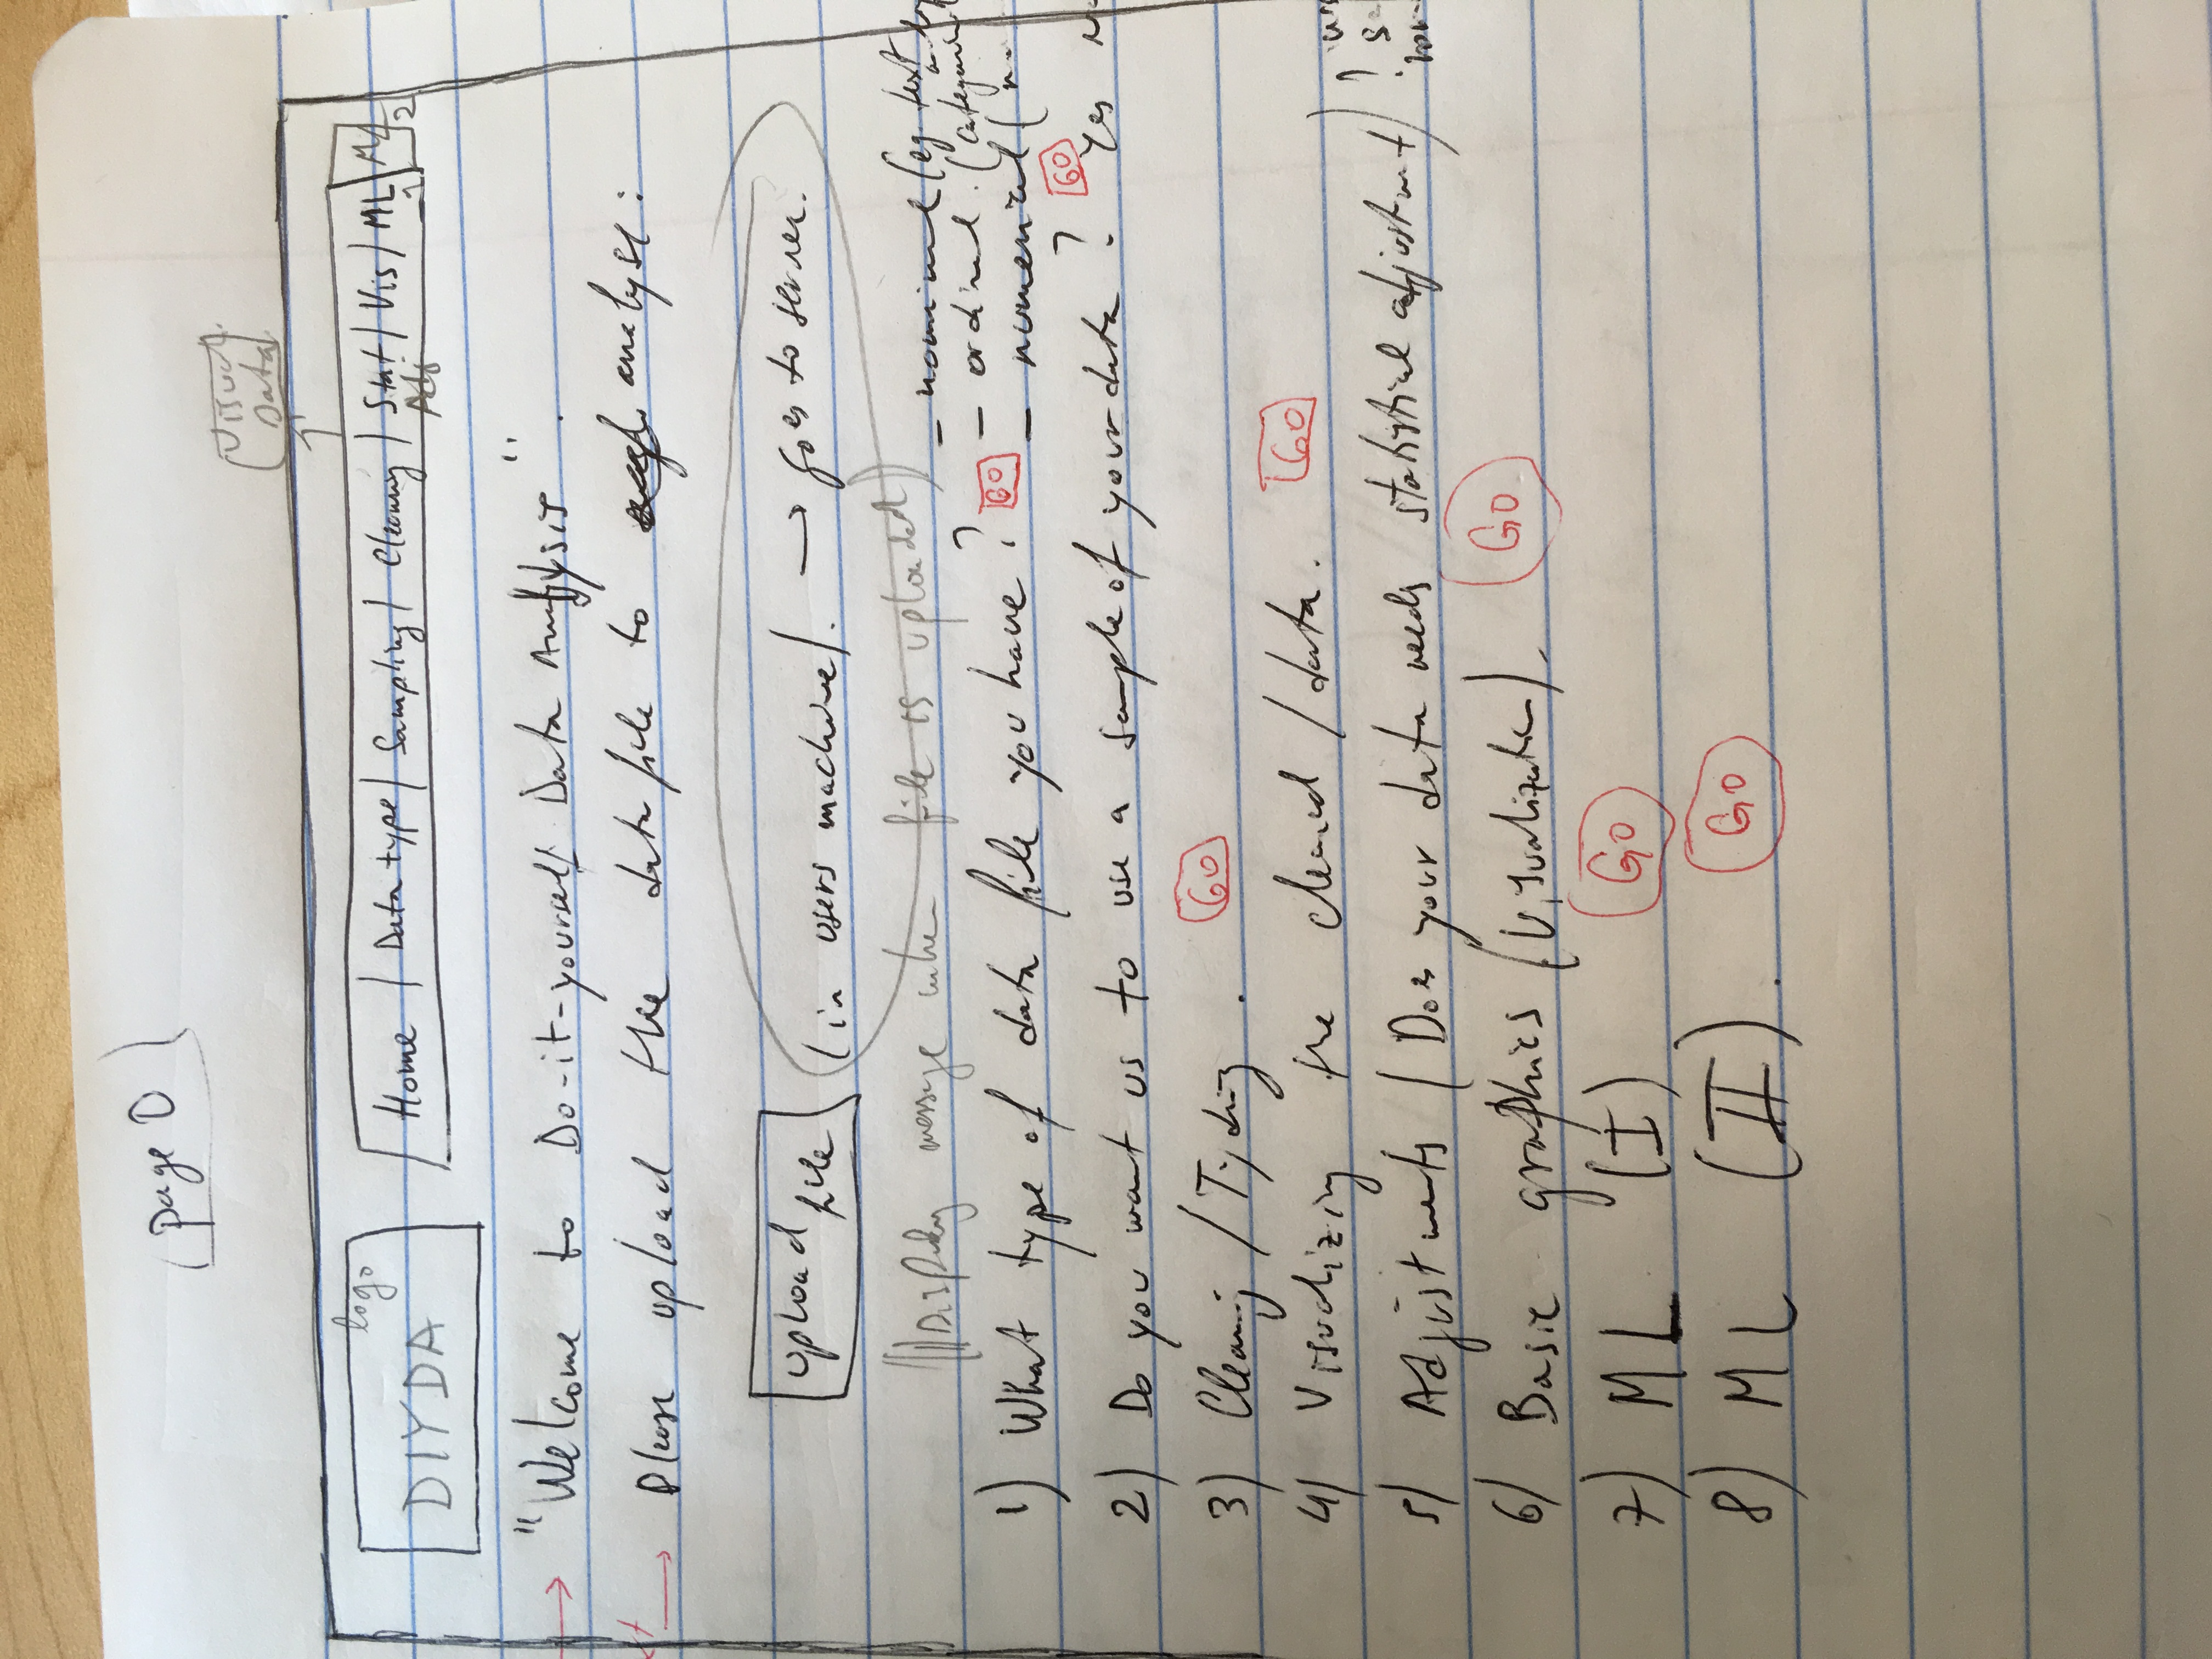 page 0
Visual.
Data
logo
DIYDA
Home | Data type | Sampling | Cleaning | Stat | Vis | ML 1 | ML 2
Adj
"Welcome to Do-it-yourself Data Analysis".
Please upload the data file to analyse:
upload file (in users machine). → goes to server.
(Display message when file is uploaded)
- nominal (eg. text
- ordinal. (categorical
- numerical (
1) What type of data file you have? GO
2) Do you want us to use a sample of your data? GO Yes No
3) Cleaning / Tyding. GO
4) Visualizing the cleaned / data. GO
5) Adjustments (Does your data needs statistical adjustment) ?
6) Basic graphics (Visualization). GO
7) ML (I) GO
8) ML (II). GO